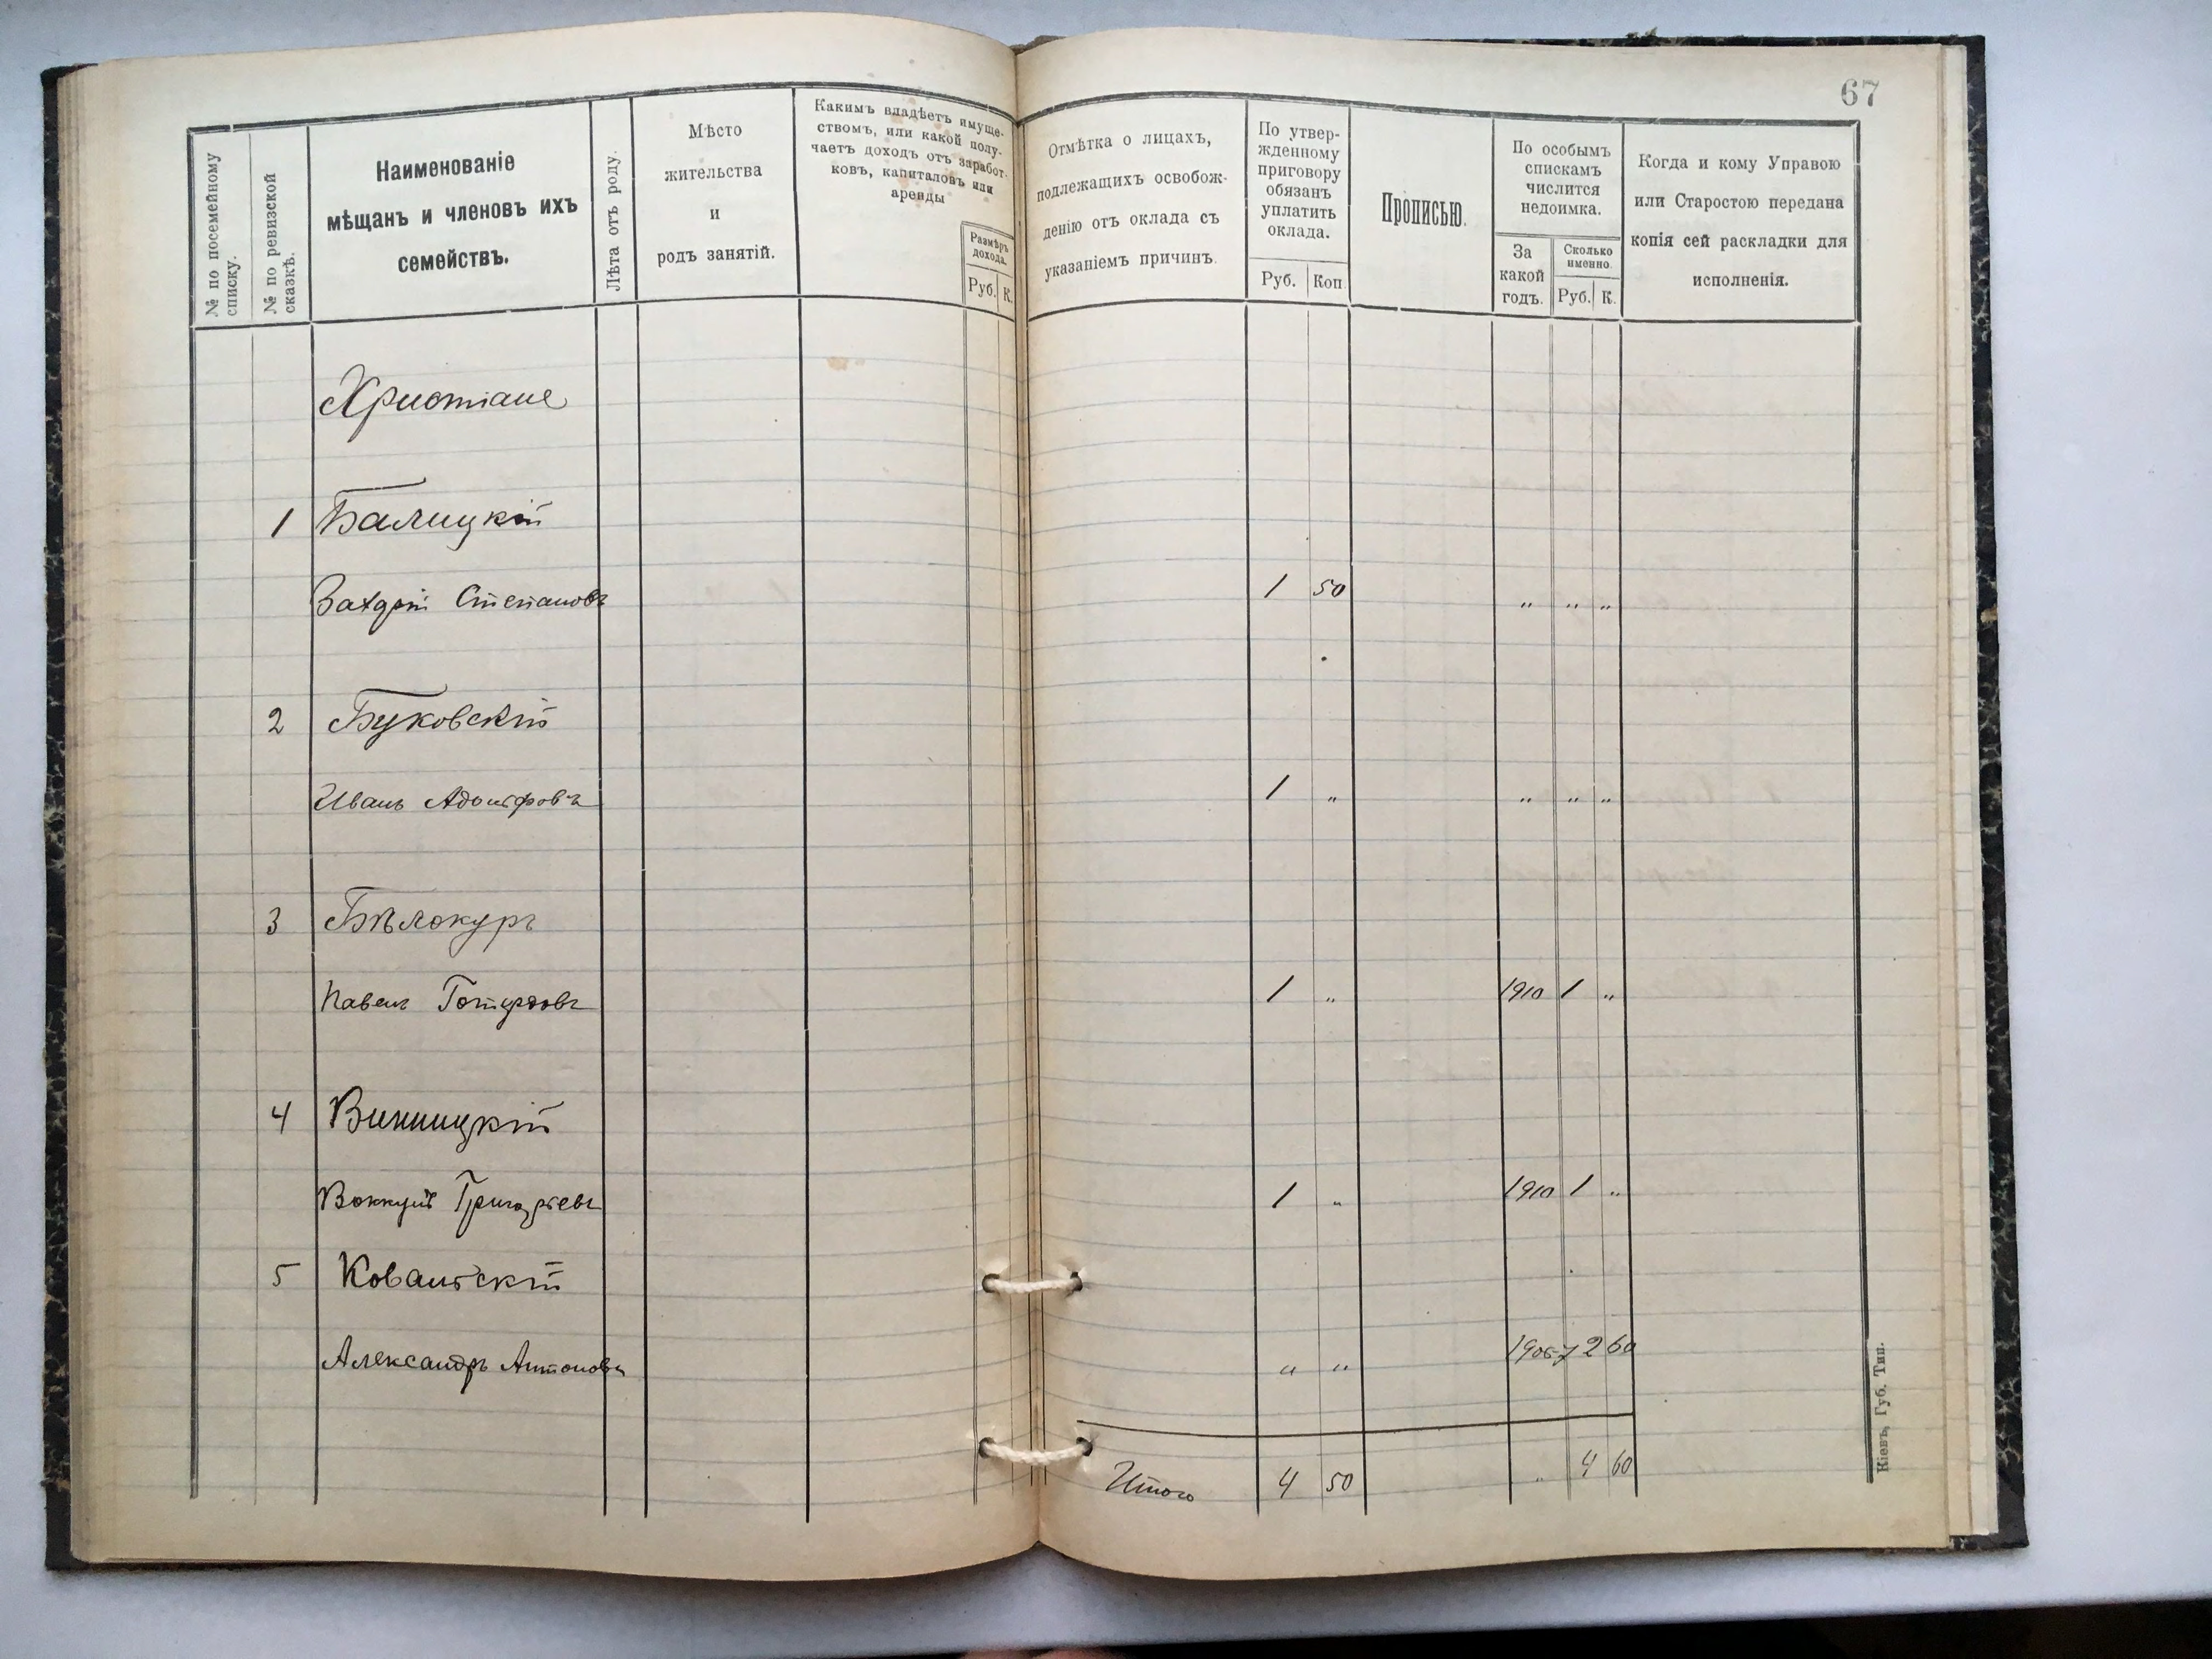 67
№ по посемейному
списку.
№ по ревизской
сказкѣ.
Наименованіе
мѣщанъ и членовъ ихъ
семействъ.
Лѣта отъ роду.
Мѣсто
жительства
и
родъ занятій.
Какимъ владѣетъ имуще-
ствомъ, или какой полу-
чаетъ доходъ отъ заработ-
ковъ, капиталовъ или
аренды
Размѣръ
дохода.
Руб. К.
Отмѣтка о лицахъ,
подлежащихъ освобож-
денію отъ оклада съ
указаніемъ причинъ.
По утвер-
жденному
приговору
обязанъ
уплатить
оклада.
Руб. Коп.
Прописью.
По особымъ
спискамъ
числится
недоимка.
За
какой
годъ.
Сколько
именно.
Руб. К.
Когда и кому Управою
или Старостою передана
копія сей раскладки для
исполненія.
Христіане
1 Балицкій
Степановъ 1 50 " " "
2 Буковскій
Иванъ Адольфовъ 1 " " " "
3 Бѣлокуръ
Павелъ 1 " 1910 1 "
4 Винницкій
Григорьевъ 1 " 1910 1 "
5 Ковальскій
Александръ Антоновъ " " 2 60
Итого 4 50 " 4 60
Кіевъ, Губ. Тип.